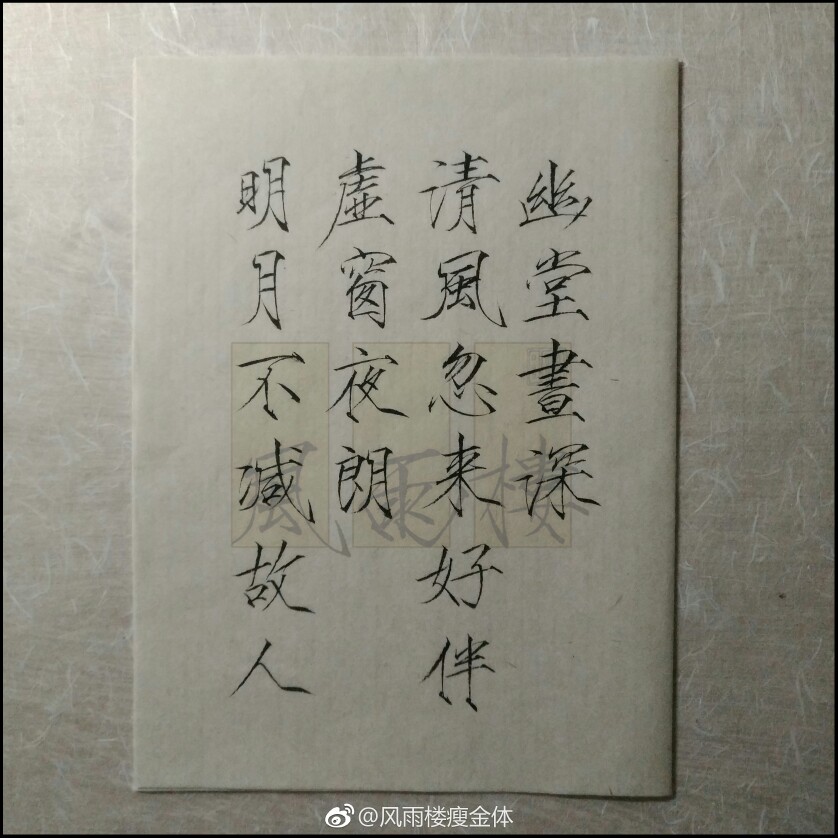 幽堂晝深
清風忽来好伴
虛窗夜朗
明月不减故人
風雨樓
@风雨楼瘦金体